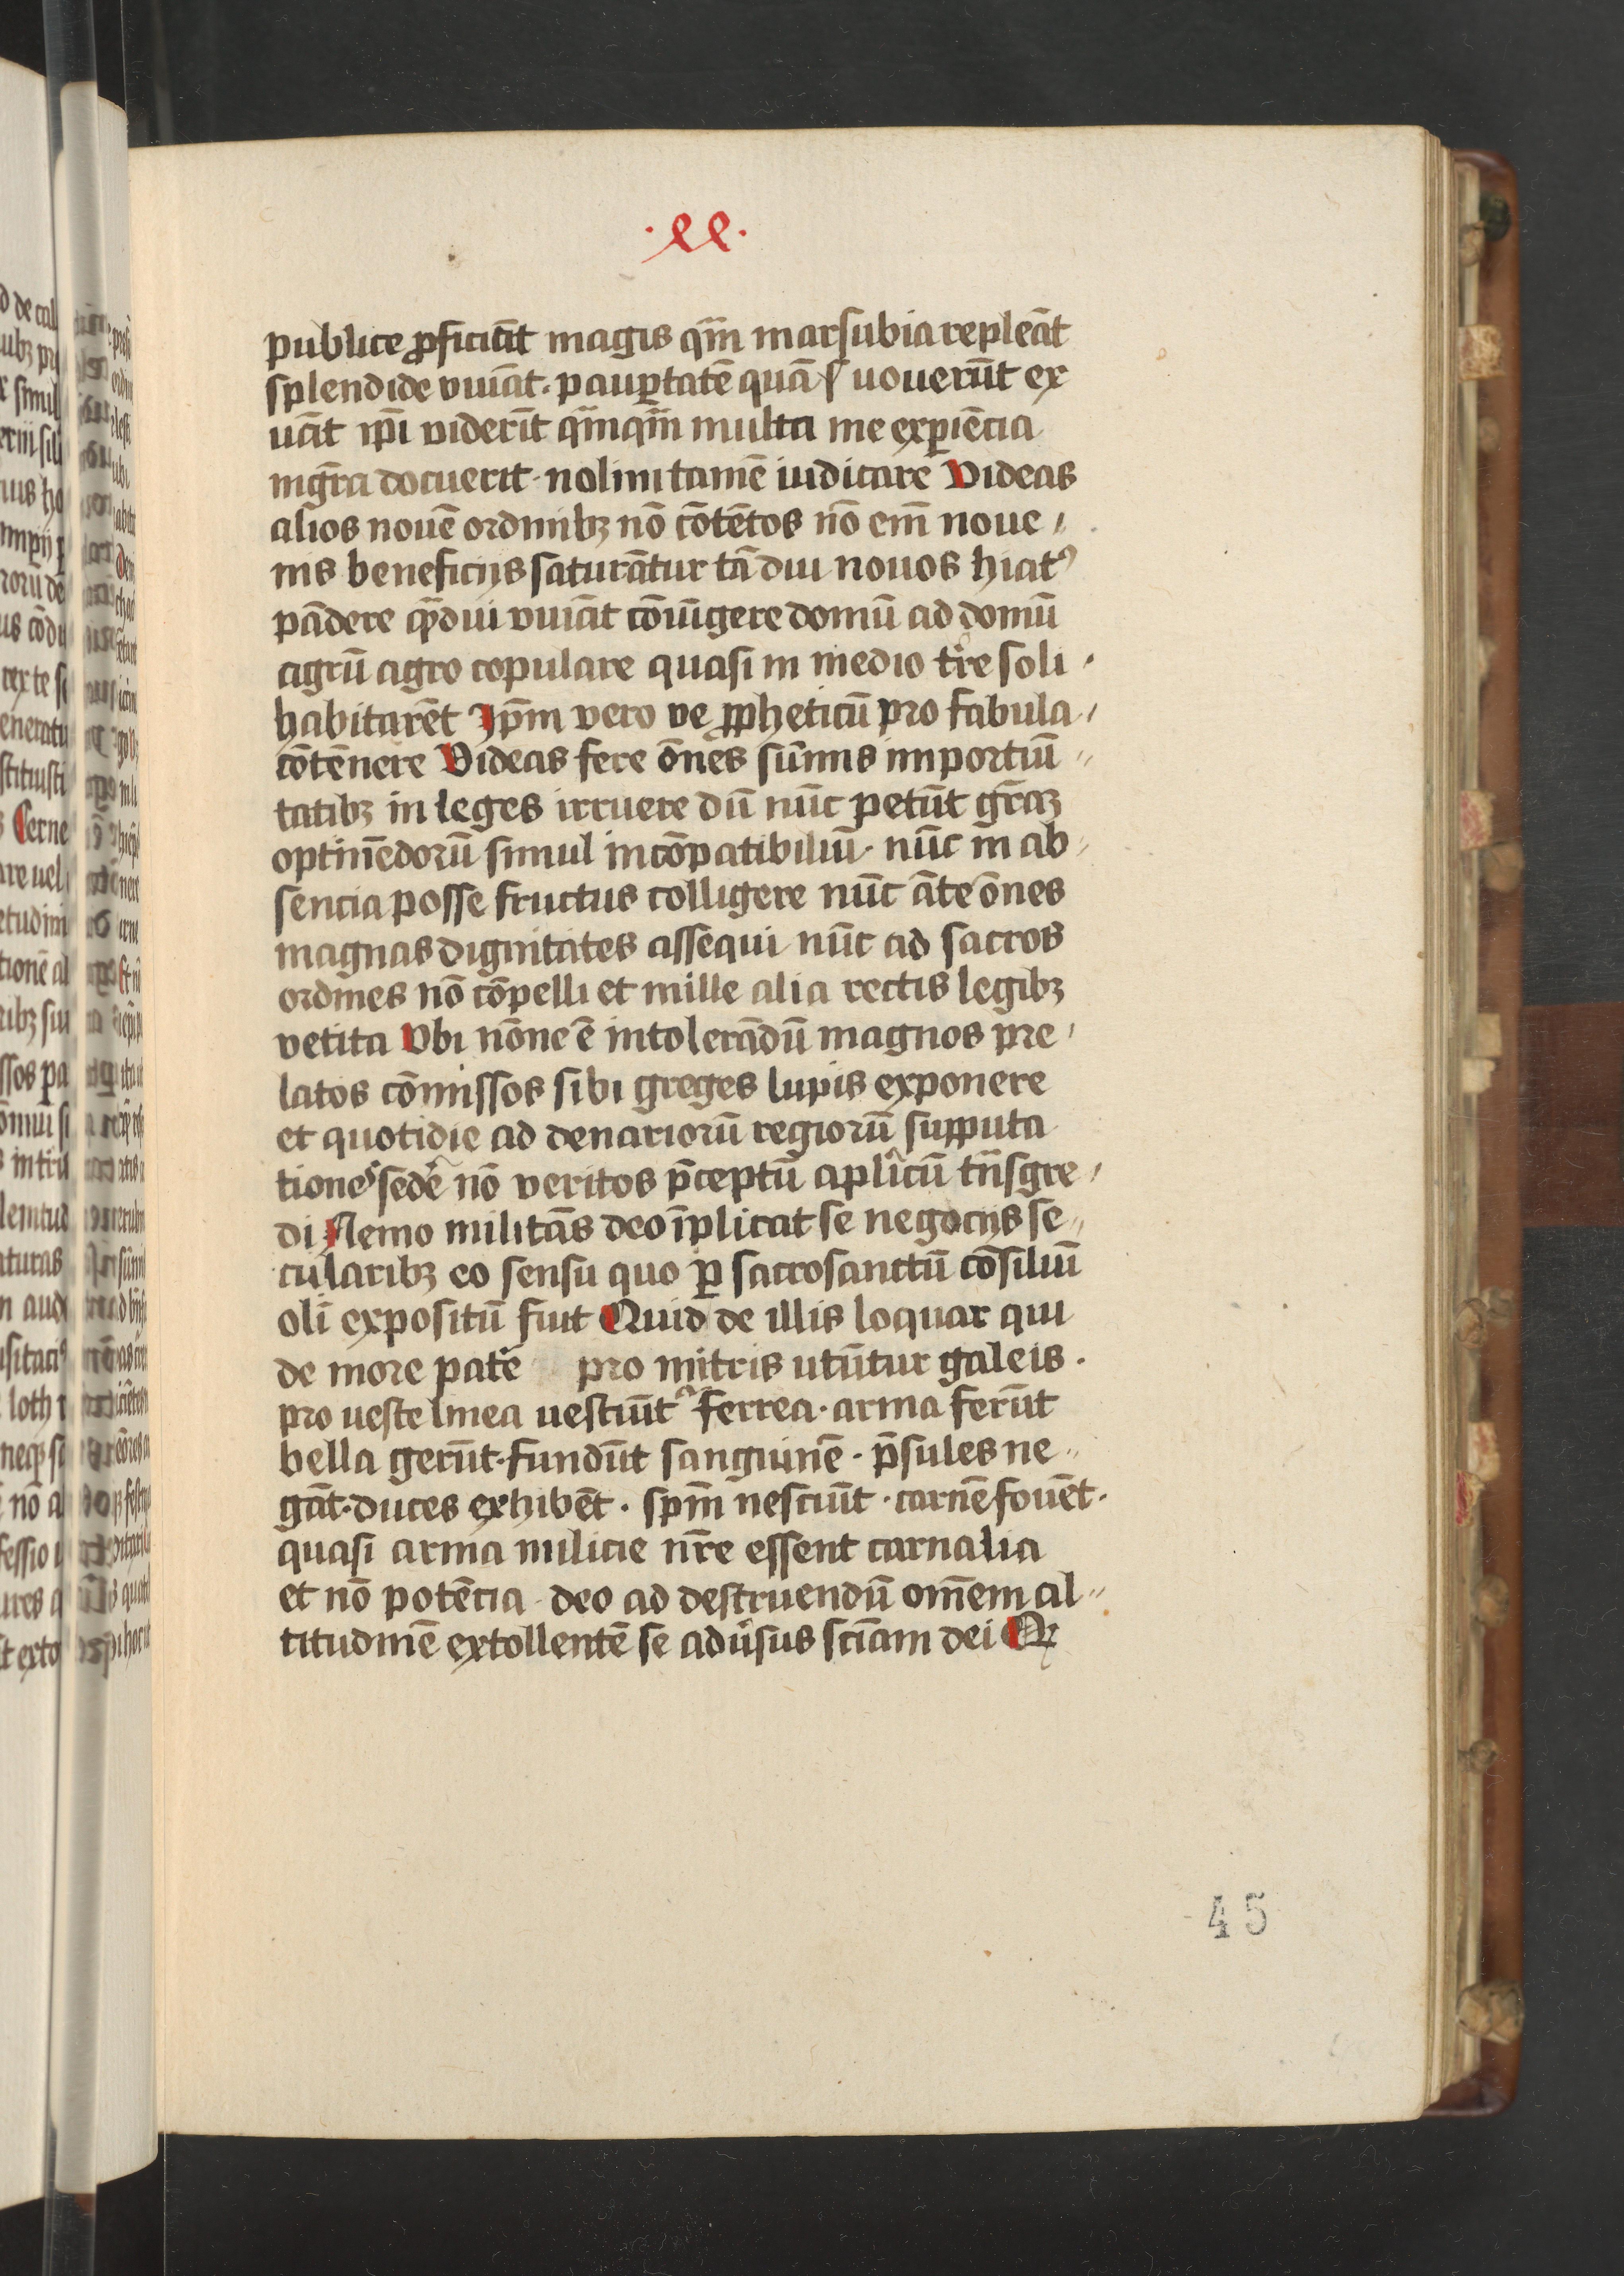 ·xx·
publice ꝓficiāt magis qm̄ marsubia repleāt
splendide viuāt. paup̄tatē quā ſ uouerūt ex
uāt ip̄i viderīt qm̄qm̄ multa me exp̱iēcia
mgr̄a docuerit · nolim tamē iudicare Videas
alios nouē ordinibꝫ nō cōtētos nō em̄ noue〃
nis beneficijs saturātur tādiu nouos hiatꝰ
pādere qꝫdiu viuāt cōiūgere domū ad domū
agrū agro copulare quasi in medio tr̄e soli〃
habitarēt Ip̄m vero ve ꝓpheticū pro fabula〃
cōtēnere Videas fere ōnes sūmis importūi〃
tatibꝫ in leges irruere dū nūc petūt gr̄aꝫ
optinēdorū simul incōpatibiliū. nūc in ab〃
sencia posse fructus colligere nūc āte ōnes
magnas dignitates assequi nūc ad sacros
ordines nō cōpelli et mille alia rectis legibꝫ
vetita Vbi nōne ē intolerādū magnos pre〃
latos cōmissos sibi greges lupis exponere
et quotidie ad denariorū regiorū supputa
tiones sedē nō veritos p̄ceptū aplicū trīsgre〃
di Nemo militās deo īplicat se negocijs se〃
cularibꝫ eo sensu quo ꝑ sacrosanctū cōsiliū
olī expositū fuit Quid de illis loquar qui
de more patē pro mitris utūtur galeis.
pro ueste linea uestiūt ferrea. arma ferūt
bella gerūt. fundūt sanguinē. p̄sules ne〃
gāt. duces exhibēt. spm̄ nesciūt. carnē fouēt.
quasi arma milicie nr̄e essent carnalia
et nō potēcia deo ad destruendū om̄em al〃
titudinē extollentē se aduīsus sciam̄ dei Qꝫ
45